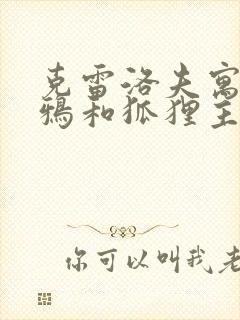 克雷洛夫寓
鸦和狐狸主
你可以叫我老